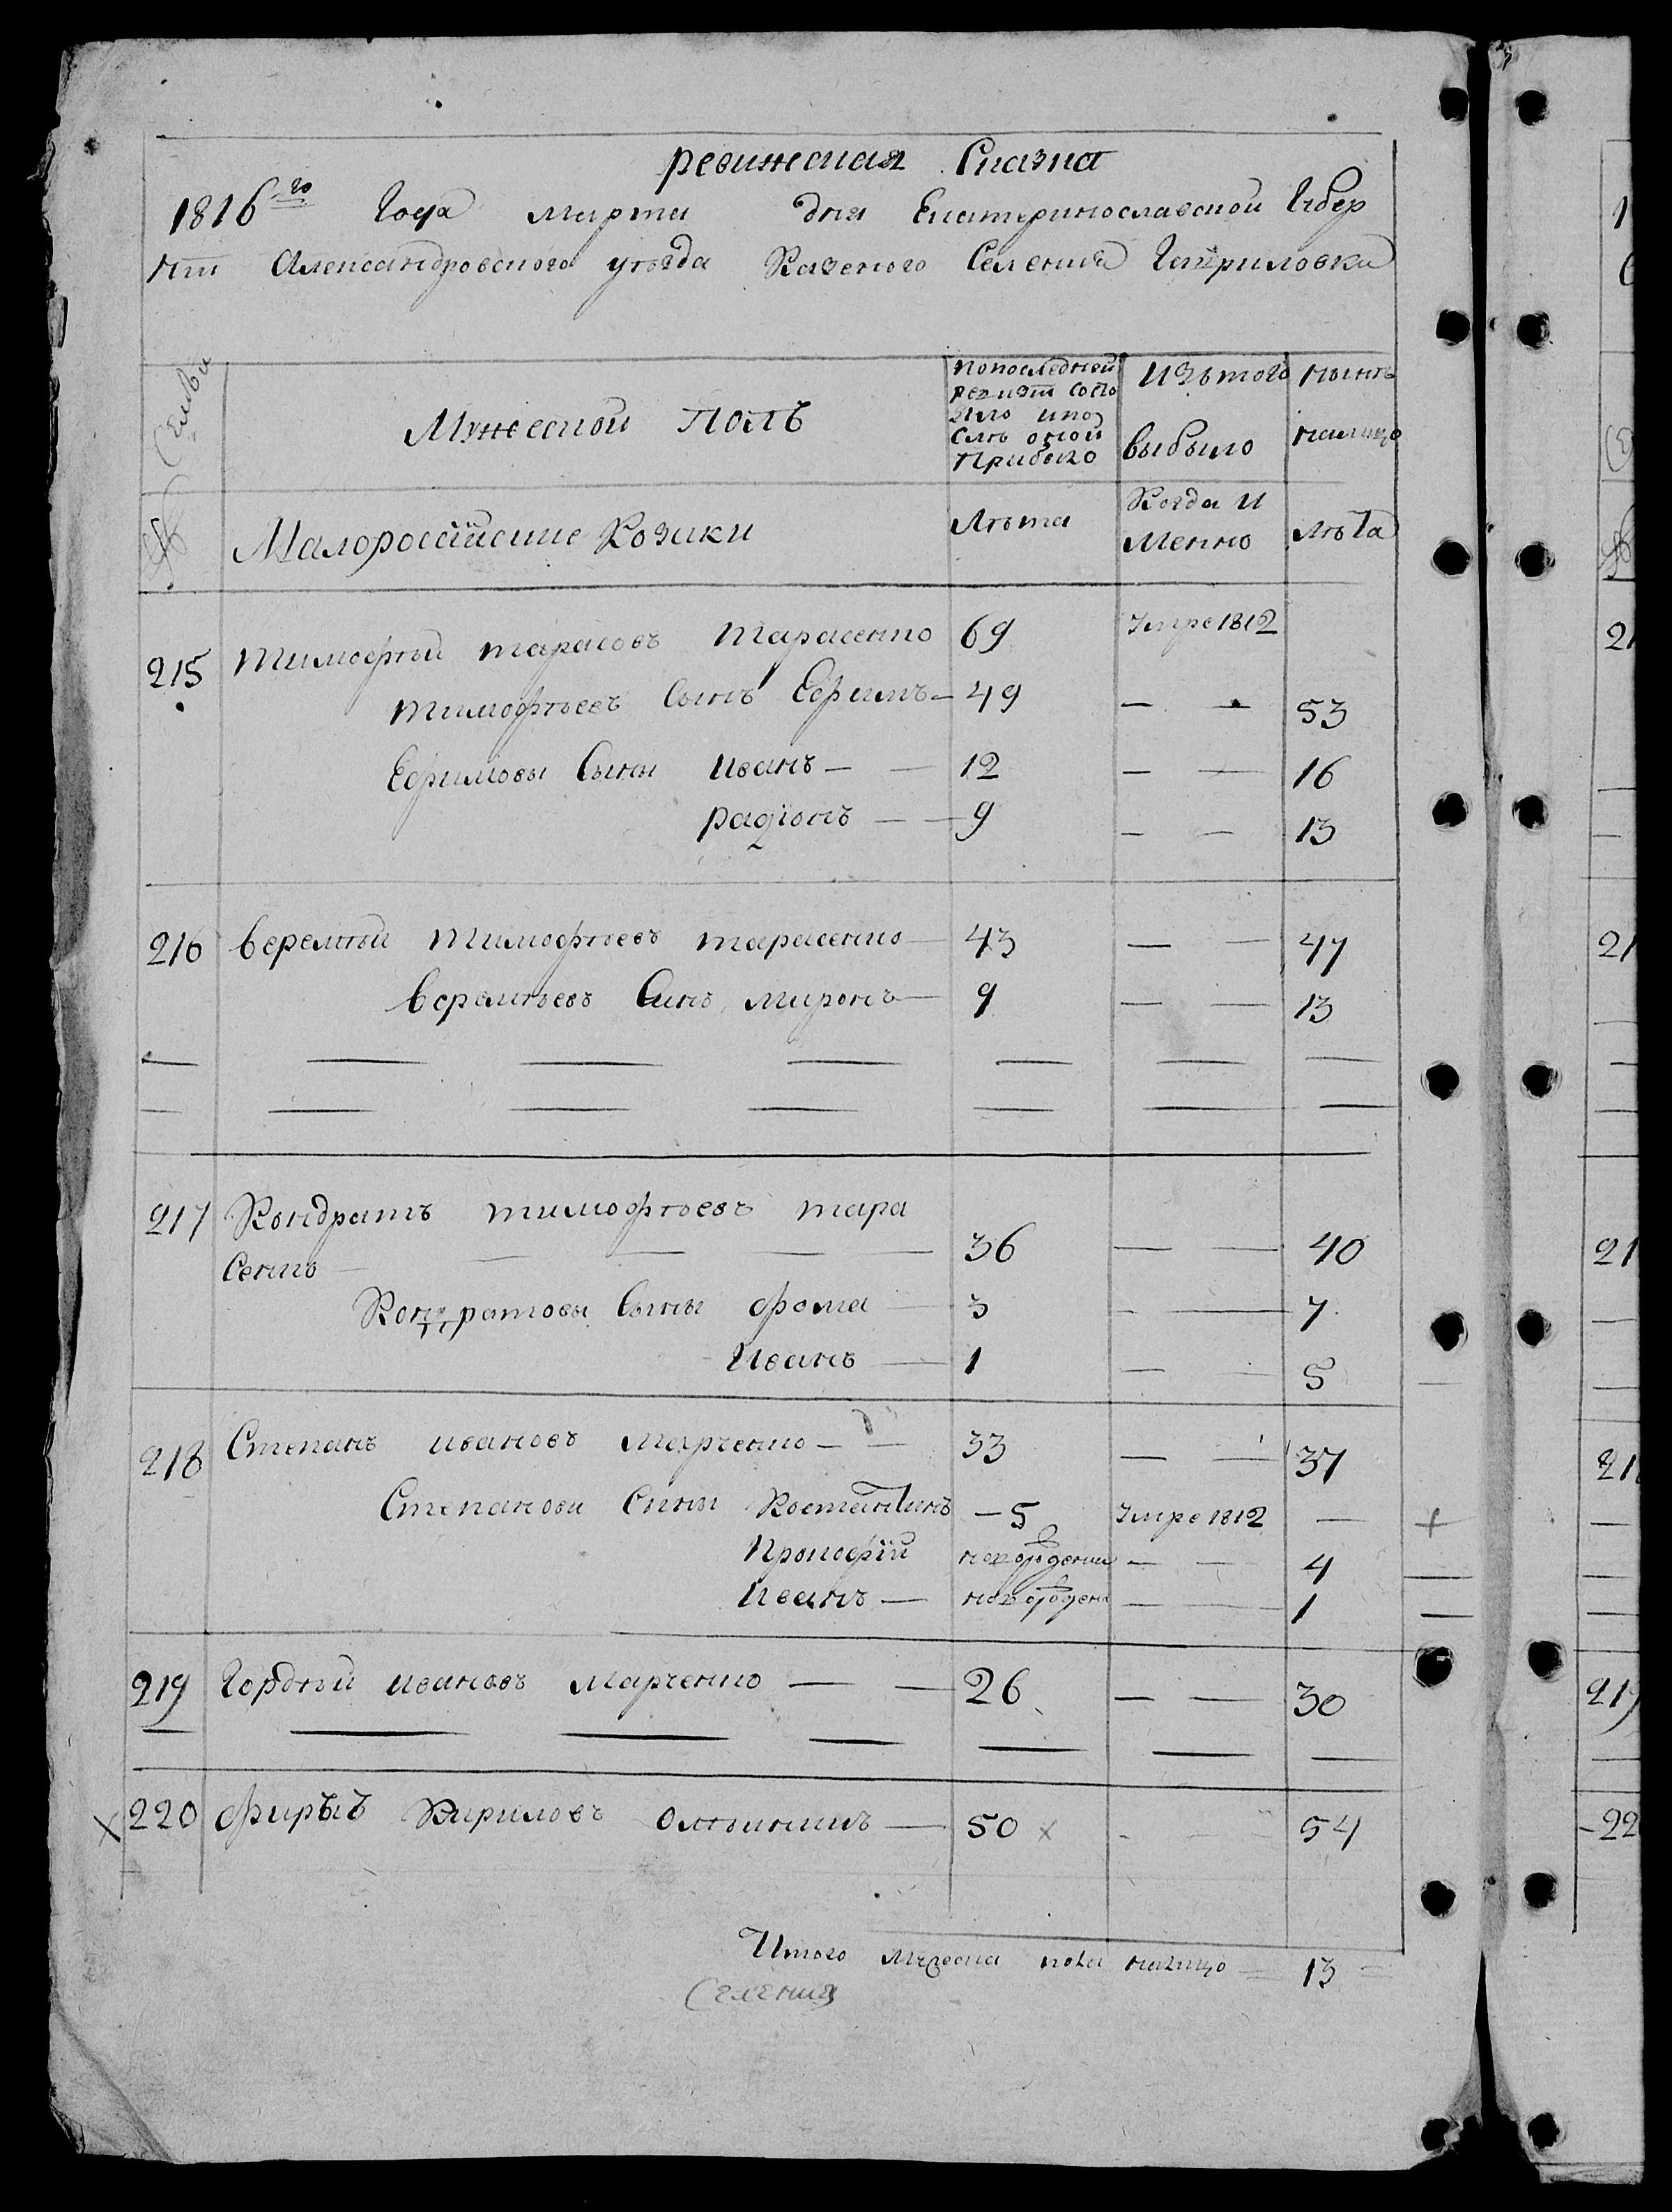 ревижская Сказка
1816го Года Марта дня Екатеринославской Губер
нии Александровского уезда Казеного Селения Гавриловки
№ Семьи
Мужеской Полъ
попоследней ревизіи состояло ипослѣ оной Прибыло
Изътого выбыло
нынѣ налицо
Малоросїйские Козаки
Лѣта
Когда И Менно
Лѣта
215 Тимофѣй тарасовъ Тарасенко 69 Умре 1812
тимофѣевъ Сынъ Ефимъ — 49 — — 53
Ефимовы Сыны иванъ — — 12 — — 16
радіонъ — — 9 — — 13
216 веремѣй Тимофѣевъ тарасенко 43 — — 47
веремѣевъ Синъ миронъ — 9 — — 13
217 Кондратъ тимофѣевъ тара
сенко — — — — 36 — — 40
Кондратовы Сыны фома 3 — — 7
Иванъ — 1 — — 5
218 Степанъ ивановъ Марченко — — 33 — — 37
Степанови Сини Костантинъ — 5 Умре 1812 —
Прокофїй новорожденни — — 4
Иванъ — новорожден — — 1
219 Гордѣй ивановъ марченко — — 26 — — 30
220 Кириловъ — 50 х - — 54
Итого мужеска пола налицо — 13
Селения